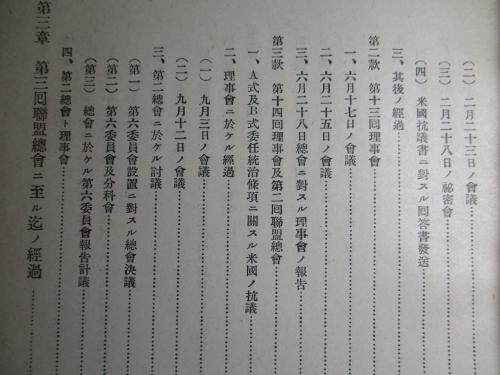 (二) 二月二十三日ノ會議
(三) 二月二十八日ノ祕密會
(四) 米國抗議書ニ對スル囘答書發送
三、其後ノ經過
第二款 第十三囘理事會
一、六月十七日ノ會議
二、六月二十五日ノ會議
三、六月二十八日總會ニ對スル理事會ノ報告
第三款 第十四囘理事會及第二囘聯盟總會
一、A式及B式委任統治條項ニ關スル米國ノ抗議
二、理事會ニ於ケル經過
(一) 九月三日ノ會議
(二) 九月十二日ノ會議
三、第二總會ニ於ケル討議
(第一) 第六委員會設置ニ對スル總會決議
(第二) 第六委員會及分科會
(第三) 總會ニ於ケル第六委員會報告計議
四、第二總會ト理事會
第三章 第三囘聯盟總會ニ至ル迄ノ經過